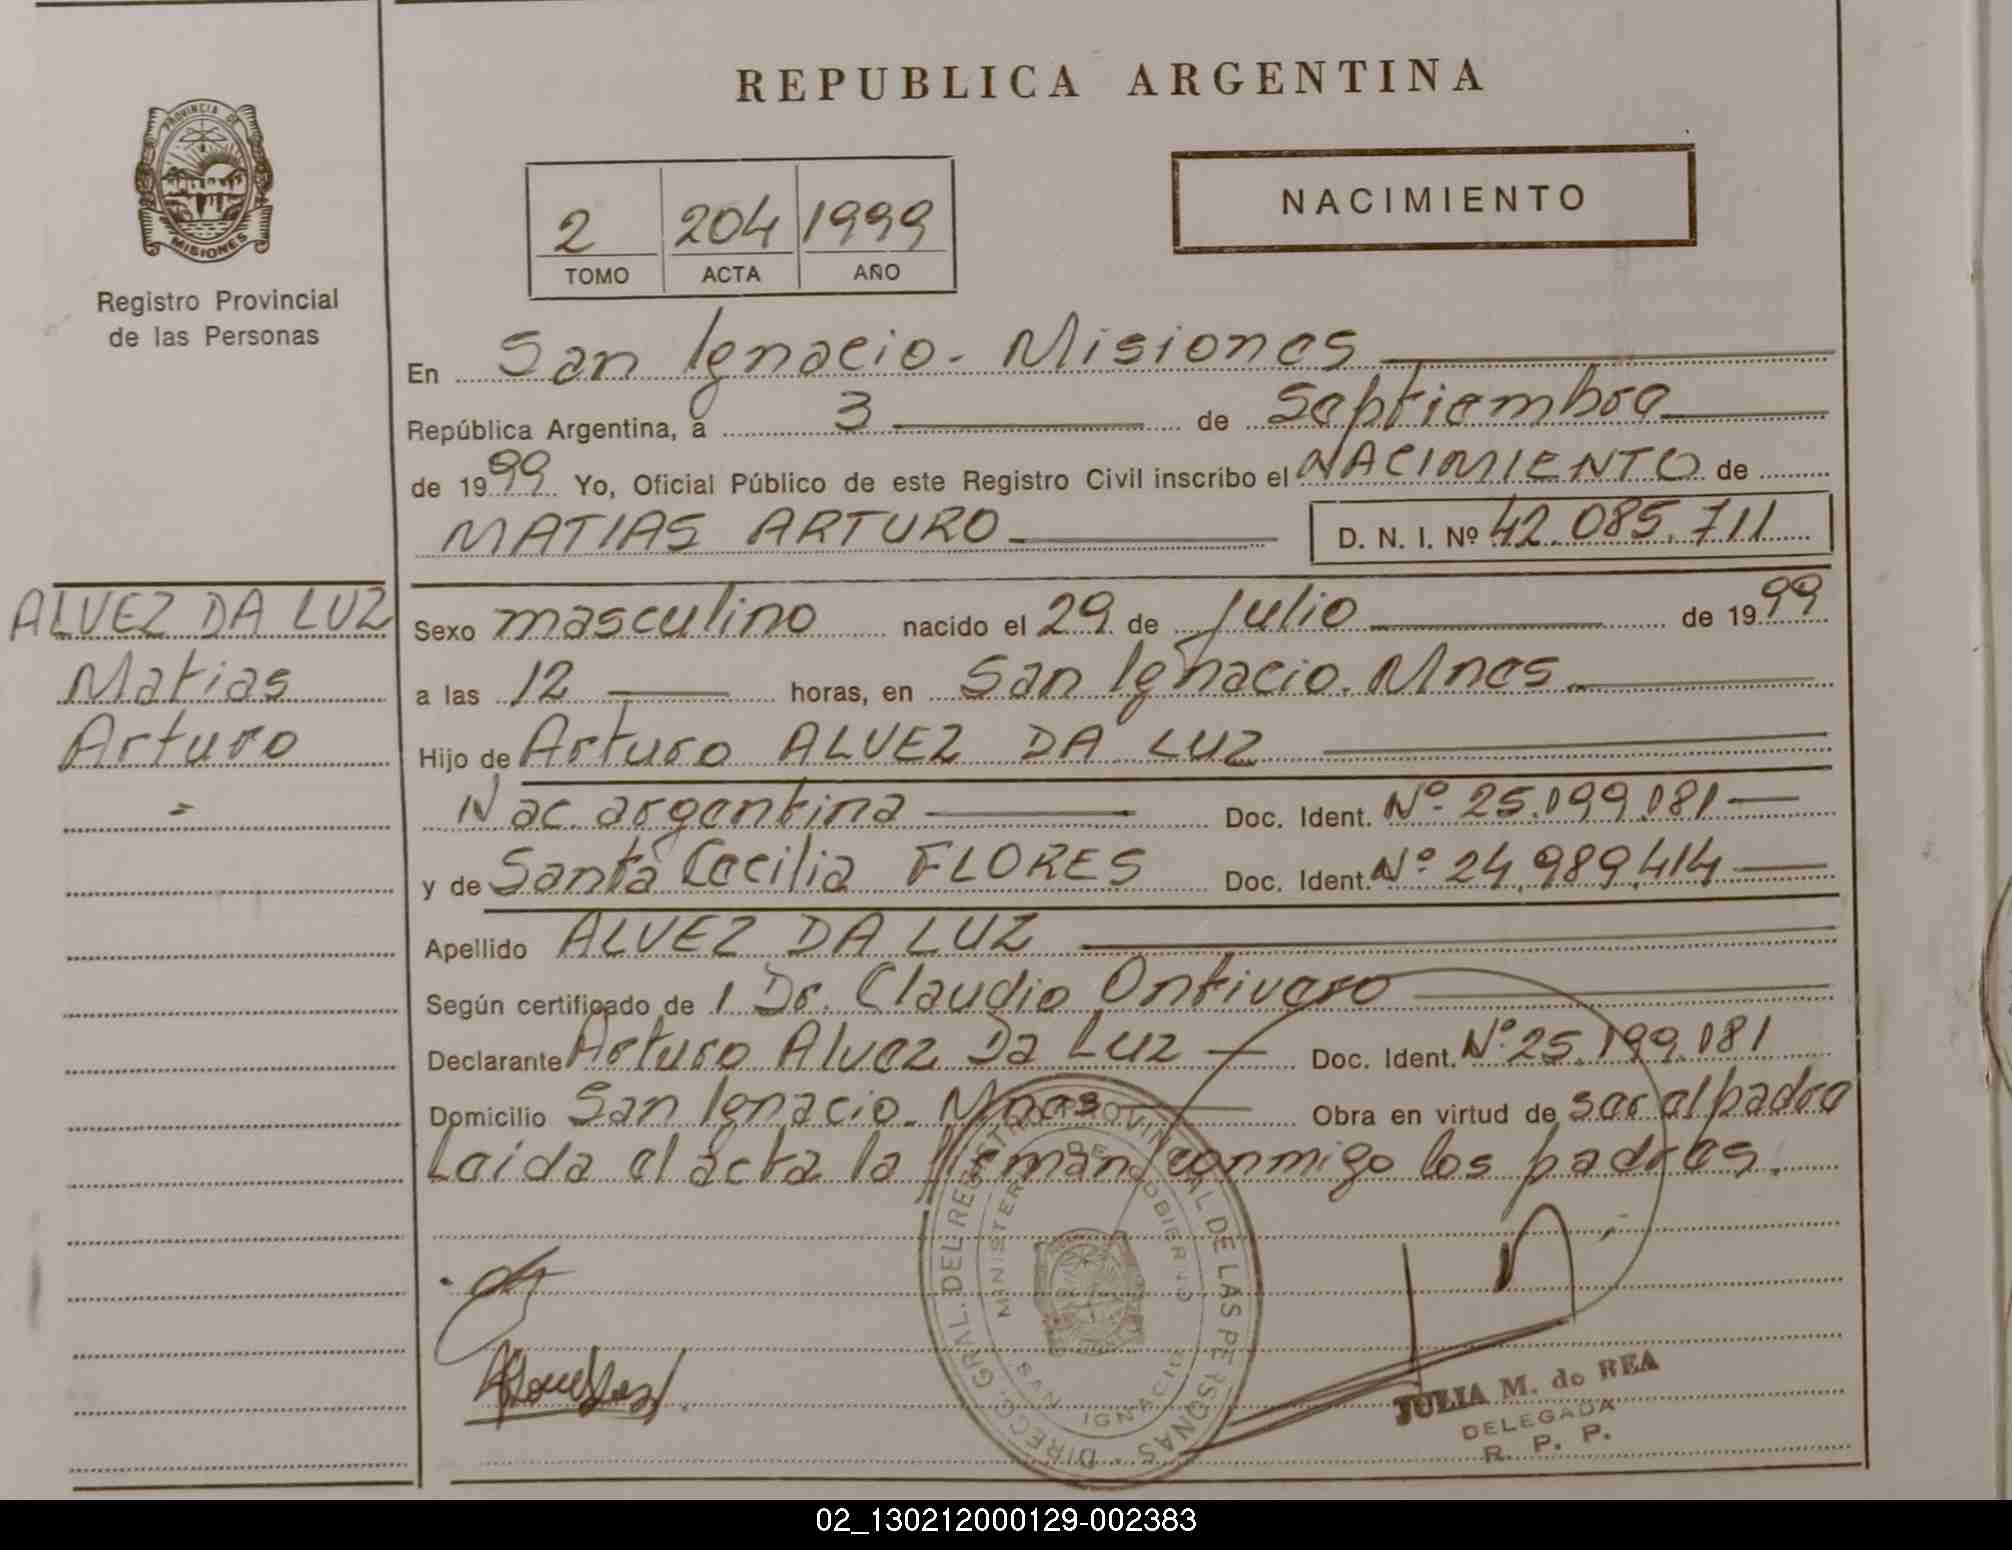 REPUBLICA ARGENTINA
PROVINCIA DE
MISIONES
Registro Provincial
de las Personas
NACIMIENTO
2 204 1999
TOMO ACTA AÑO
En San Ignacio. Misiones
República Argentina, a 3 de Septiembre
de 1999 Yo, Oficial Público de este Registro Civil inscribo el NACIMIENTO de
MATIAS ARTURO D. N. I. Nº 42.085.711
ALVEZ DA LUZ
Matias
Arturo
Sexo masculino nacido el 29 de Julio de 1999
a las 12 horas, en San Ignacio. Mnes.
Hijo de Arturo ALVEZ DA LUZ
Nac. argentina Doc. Ident. Nº 25.199.181
y de Santa Cecilia FLORES Doc. Ident. Nº 24.989.414
Apellido ALVEZ DA LUZ
Según certificado de / Dr. Claudio Ontivero
Declarante Arturo Alvez Da Luz Doc. Ident. Nº 25.199.181
Domicilio San Ignacio. Mnes Obra en virtud de ser el padre
Leida el acta la firman conmigo los padres.
DIRECC. GRAL. DEL REGISTRO PROVINCIAL DE LAS PERSONAS
MINISTERIO DE GOBIERNO
SAN IGNACIO
JULIA M. de REA
DELEGADA
R. P. P.
02_130212000129-002383